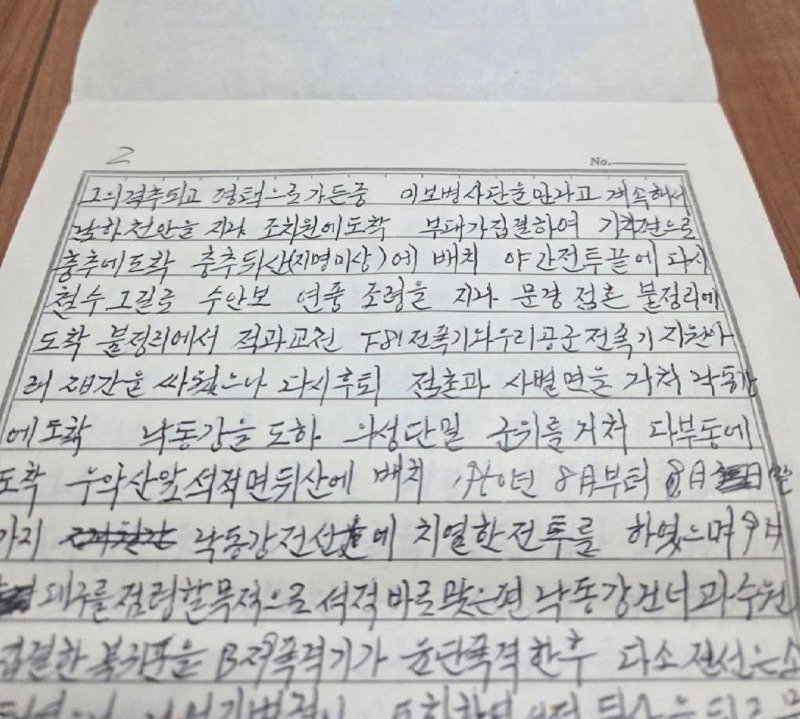 2
No.
그의격추되고 평택으로가든중 미보병사단을만라고 계속해서
남하천안을 지나 조치원에도착 부대가집결하여 기차편으로
충주에도착 충주뒤산(지명미상)에 배치 야간전투끝에 다시
철수그길로 수안보 연풍 조령을 지나 문경 점촌 불정리에
도착 불정리에서 적과교전 전폭기와우리공군전폭기 지원아
러 간을 싸웠으나 다시후퇴 점촌과 사벌면을 거쳐 낙동강
에도착 낙동강을 도하 의성단밀 군위를거쳐 다부동에
도착 우악산앞석적면뒤산에 배치 년 8月부터 8月
가지 낙동강전선에 치열한전투를 하였으며 9月
대구를점령할목적으로 석적바로맞은편낙동강건너과수원
집결한 B29폭격기가 융단폭격한후 다소전선은소